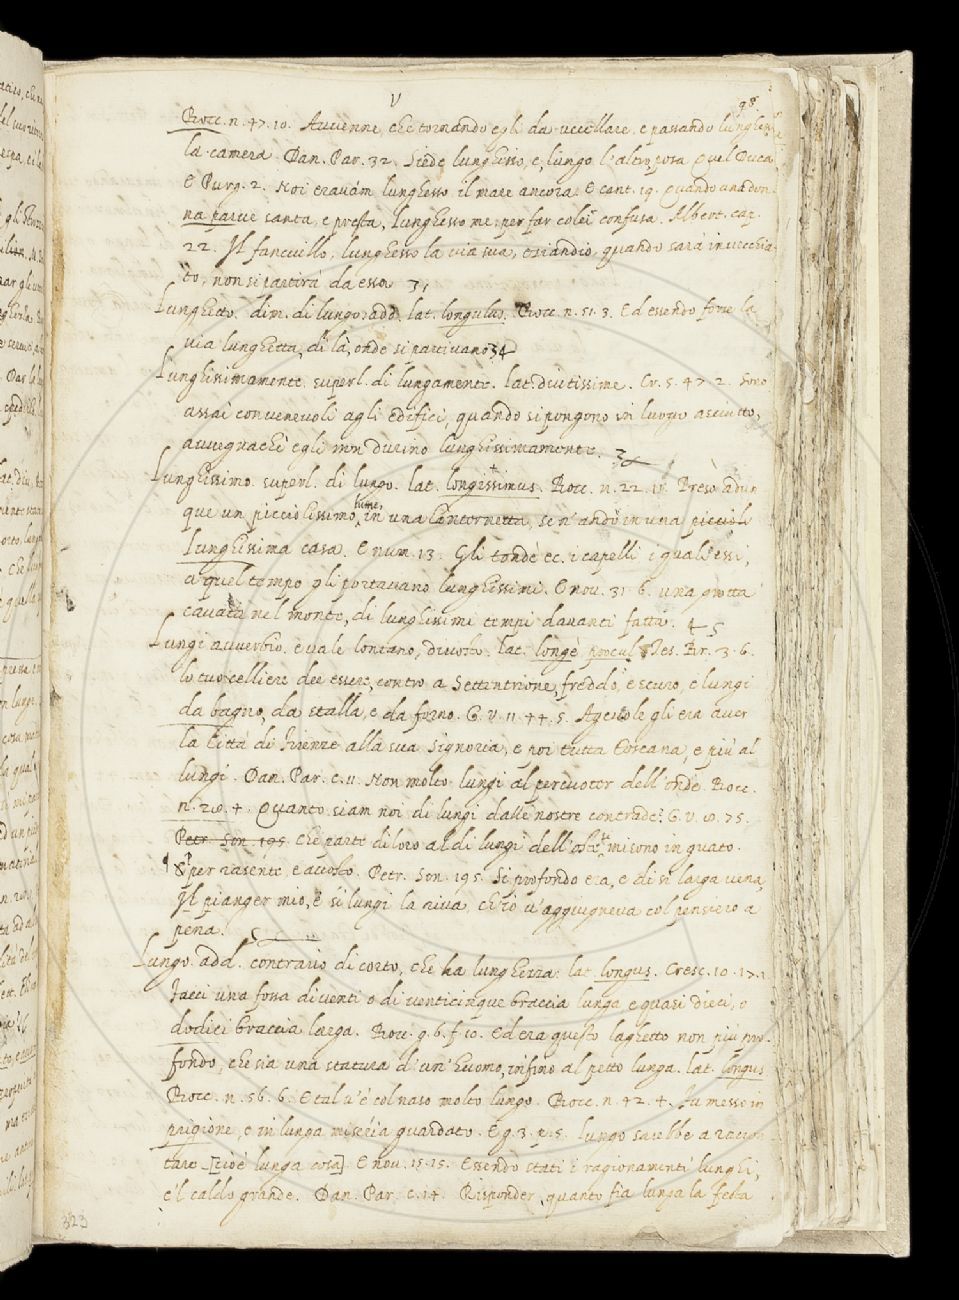 V
98
Bocc. n. 47. 10. Avvenne, che tornando egli da uccellare, e passando lunghesso
la camera. Dan. Par. 32. Siede lunghesso, e lungo l'altro posa quel Duca
E Purg. 2. Noi eravam lunghesso il mare ancora. E cant. 19. quando una don-
na parve santa, e presta, Lunghesso me, per far colei confusa. Albert. cap.
22. Il fanciullo, lunghesso la via sua, eziandio, quando sarà invecchia-
to, non si partirà da essa
Lunghetto. dim. di lungo. add. lat. longulus. Bocc. n. 51. 3. Ed essendo forse la
via lunghetta, di là, onde si partivano
Lunghissimamente. superl. di lungamente. lat. diutissime. Cr. 5. 47. 2. Sono
assai convenevoli agli edifici, quando si pongono in luogo asciutto,
avvegnachè egli non durino lunghissimamente.
Lunghissimo. superl. di lungo. lat. longissimus. Bocc. n. 22. Preso adun
que un picciolissimo lume, in una Lanternetta, se n'andò in una
Lunghissima casa. E num. 13. Gli tondè ec. i capelli i quali essi,
a quel tempo gli portavano lunghissimi. E nov. 31. 6. una grotta
cavata nel monte, di lunghissimi tempi davanti fatta.
Lungi avverbio. e vale lontano, discosto. lat. longè procul Tes. Br. 3. 6.
lo tuo celliere dee essere, contro a Settentrione, freddo, e scuro, e lungi
da bagno, da stalla, e da forno. G. V. 11. 44. 5. Agevole gli era aver
la Città di Firenze alla sua Signoria, e poi tutta Toscana, e più al
lungi. Dan. Par. c. 11. Non molto lungi al percuoter dell'onde. Bocc.
n. 20. 4. Quanto siam noi di lungi dalle nostre contrade? G. V. 75.
Petr. Son. 195. che parte di loro al di lungi dell'oste misono in guato.
per rasente, e accosto. Petr. Son. 195. Sì profondo era, e di sì larga vena,
Il pianger mio, e sì lungi la riva, ch'io v'aggiugneva col pensiero a
pena.
Lungo. add. contrario di corto, che ha lunghezza. lat. longus. Cresc. 10. 17. 1
Facci una fossa di venti o di venticinque braccia lunga e quasi dieci, o
dodici braccia larga. Bocc. g. 6. f. 10. Ed era questo laghetto non più pro-
fondo, che sia una statura d'un'huomo, infino al petto lunga. lat. longus
Bocc. n. 56. 6. E tal v'è col naso molto lungo. Bocc. n. 42. 4. Fu messo in
prigione, e in lunga miseria guardato. E g. 3. p. 5. lungo sarebbe a raccon
tare [cioè lunga cosa] E nov. 15. 15. Essendo stati i ragionamenti lunghi,
e'l caldo grande. Dan. Par. c. 14. Risponder, quanto fia lunga la festa
323